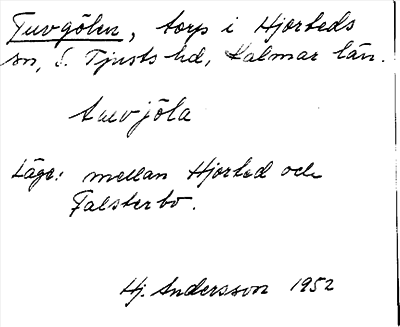 Tuvgölen, torp i Hjorteds
sn, S. Tjusts hd, Kalmar län.
tuvjöla
Läge: mellan Hjorted och
Falsterbo.
Hj. Andersson 1952